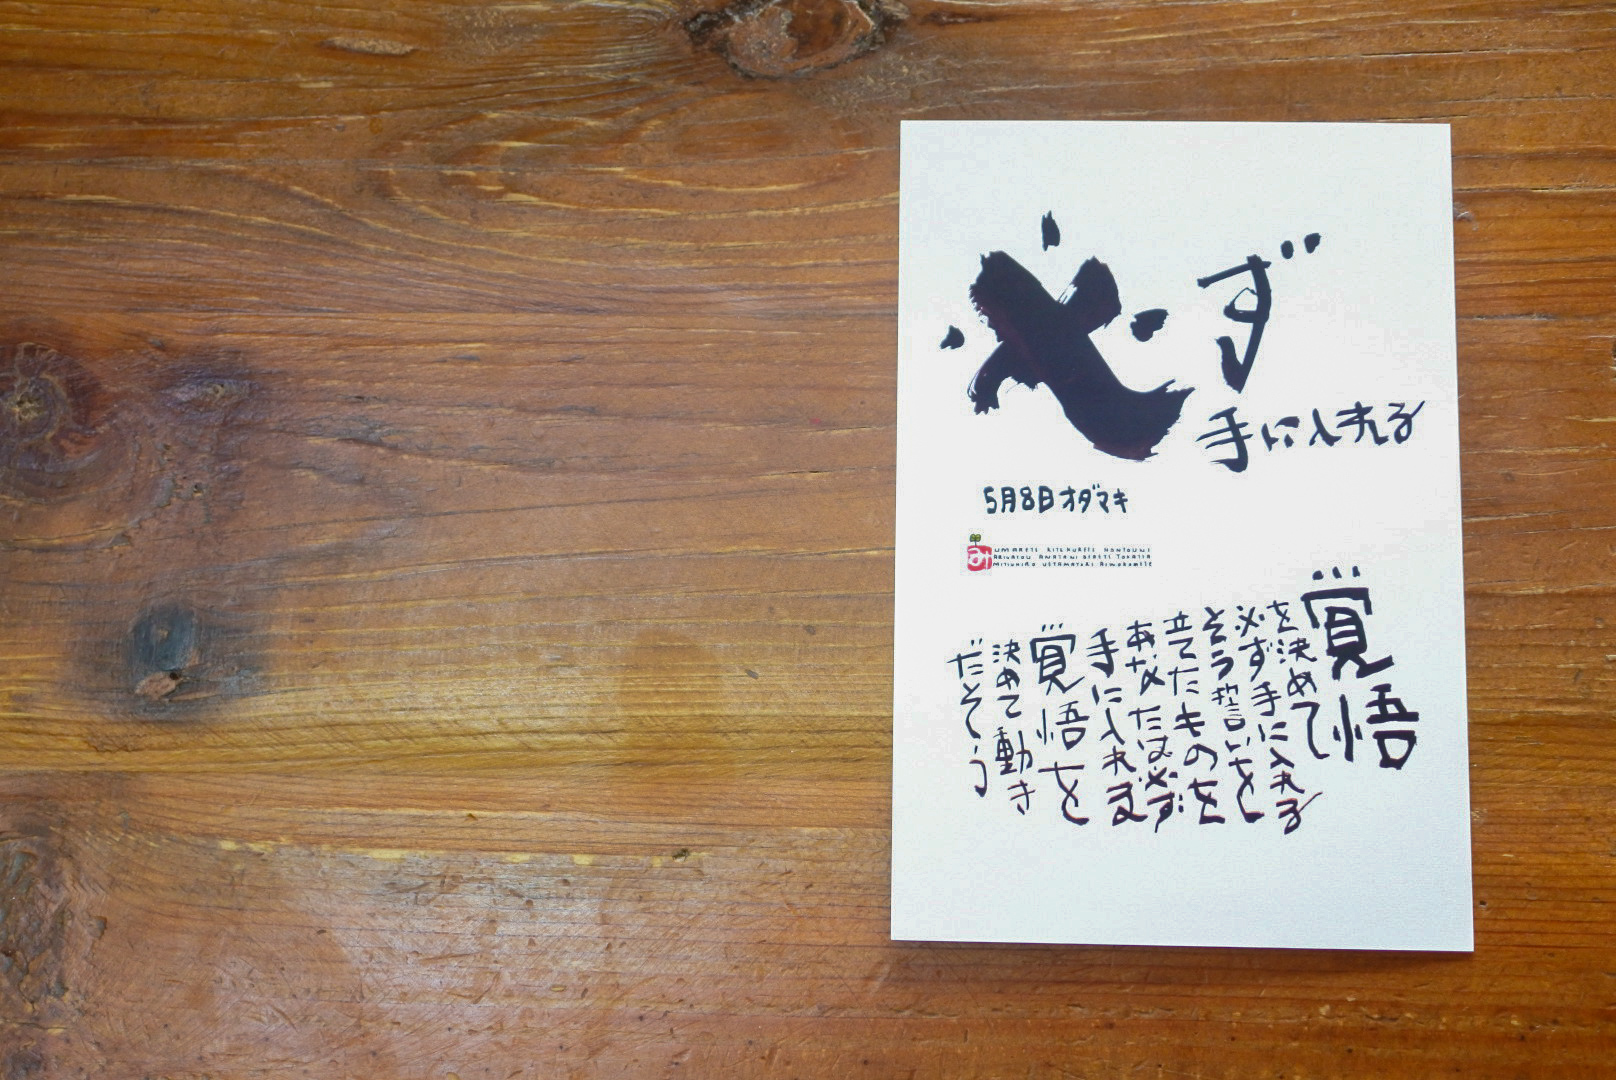 必ず
手に入れる
5月8日オダマキ
み
UMARETE KITEKURETE HONTOUNI
ARIGATOU ANATANI DEAETE
覚悟
を決めて
必ず手に入れる
そう誓いを
立てたものを
あなたは必ず
手に入れる
覚悟を
決めて動き
だそう